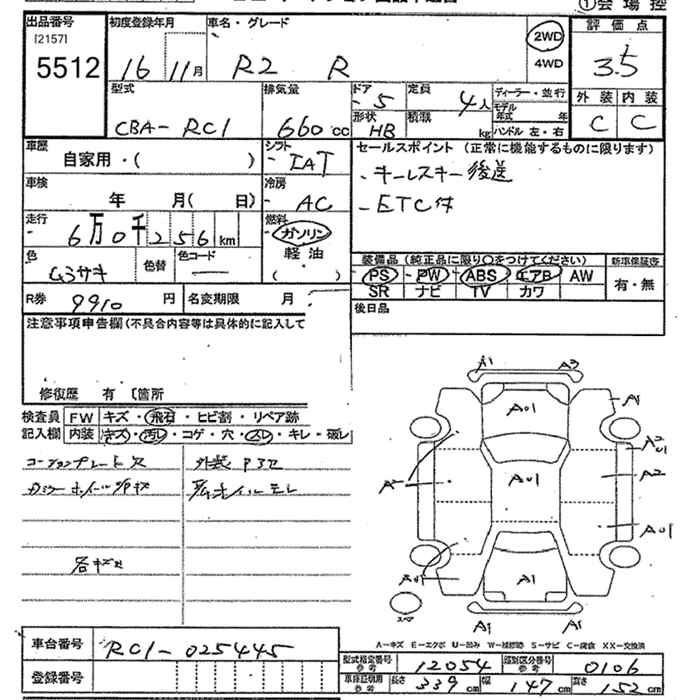 ①会場控
出品番号 初度登録年月 車名・グレード 評価点
[2157]
5512 16 11月 R2 R 2WD 4WD 3.5
型式 排気量 ドア 定員 ディーラー・並行 外装 内装
CBA-RC1 660cc 5 4人 モデル年式 年 C C
形状 HB 積載 kg ハンドル 左・右
車歴 シフト セールスポイント (正常に機能するものに限ります)
自家用・( ) IAT -キーレスキー後送
車検 冷房 -ETC付
年 月( 日) AC
走行 燃料
6万0千256km ガソリン
色 色替 色コード 軽油 装備品 (純正品に限り○をつけてください) 新車保証書
ムラサキ ( ) PS PW ABS エアB AW 有・無
SR ナビ TV カワ
R券 9910 円 名変期限 月 後日品
注意事項申告欄(不具合内容等は具体的に記入して
修復歴 有 〔箇所
検査員 FW キズ・飛石・ヒビ割・リペア跡
記入欄 内装 キズ・汚レ・コゲ・穴・スレ・キレ・破レ
A1 A2
A01 A1
A2 A01
A01 A2
A
A01
A01 A1
A1 A1
スペア
A-キズ E-エクボ U-凹み W-補修跡 S-サビ C-腐食 XX-交換済
車台番号 RC1-025445
型式指定番号 参考 12054 類別区分番号 参考 0106
登録番号
車庫証明用 参考 長さ 339cm 幅 147cm 高さ 152cm